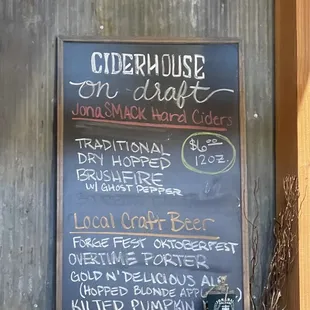 CIDERHOUSE
on draft
JonaSMACK Hard Ciders
TRADITIONAL
DRY HOPPED
BRUSHFIRE
W/ GHOST PEPPER
$6.00
12OZ.
Local Craft Beer
FORGE FEST OKTOBERFEST
OVERTIME PORTER
GOLD N' DELICIOUS
(HOPPED BLONDE
KILTED PUMPKIN